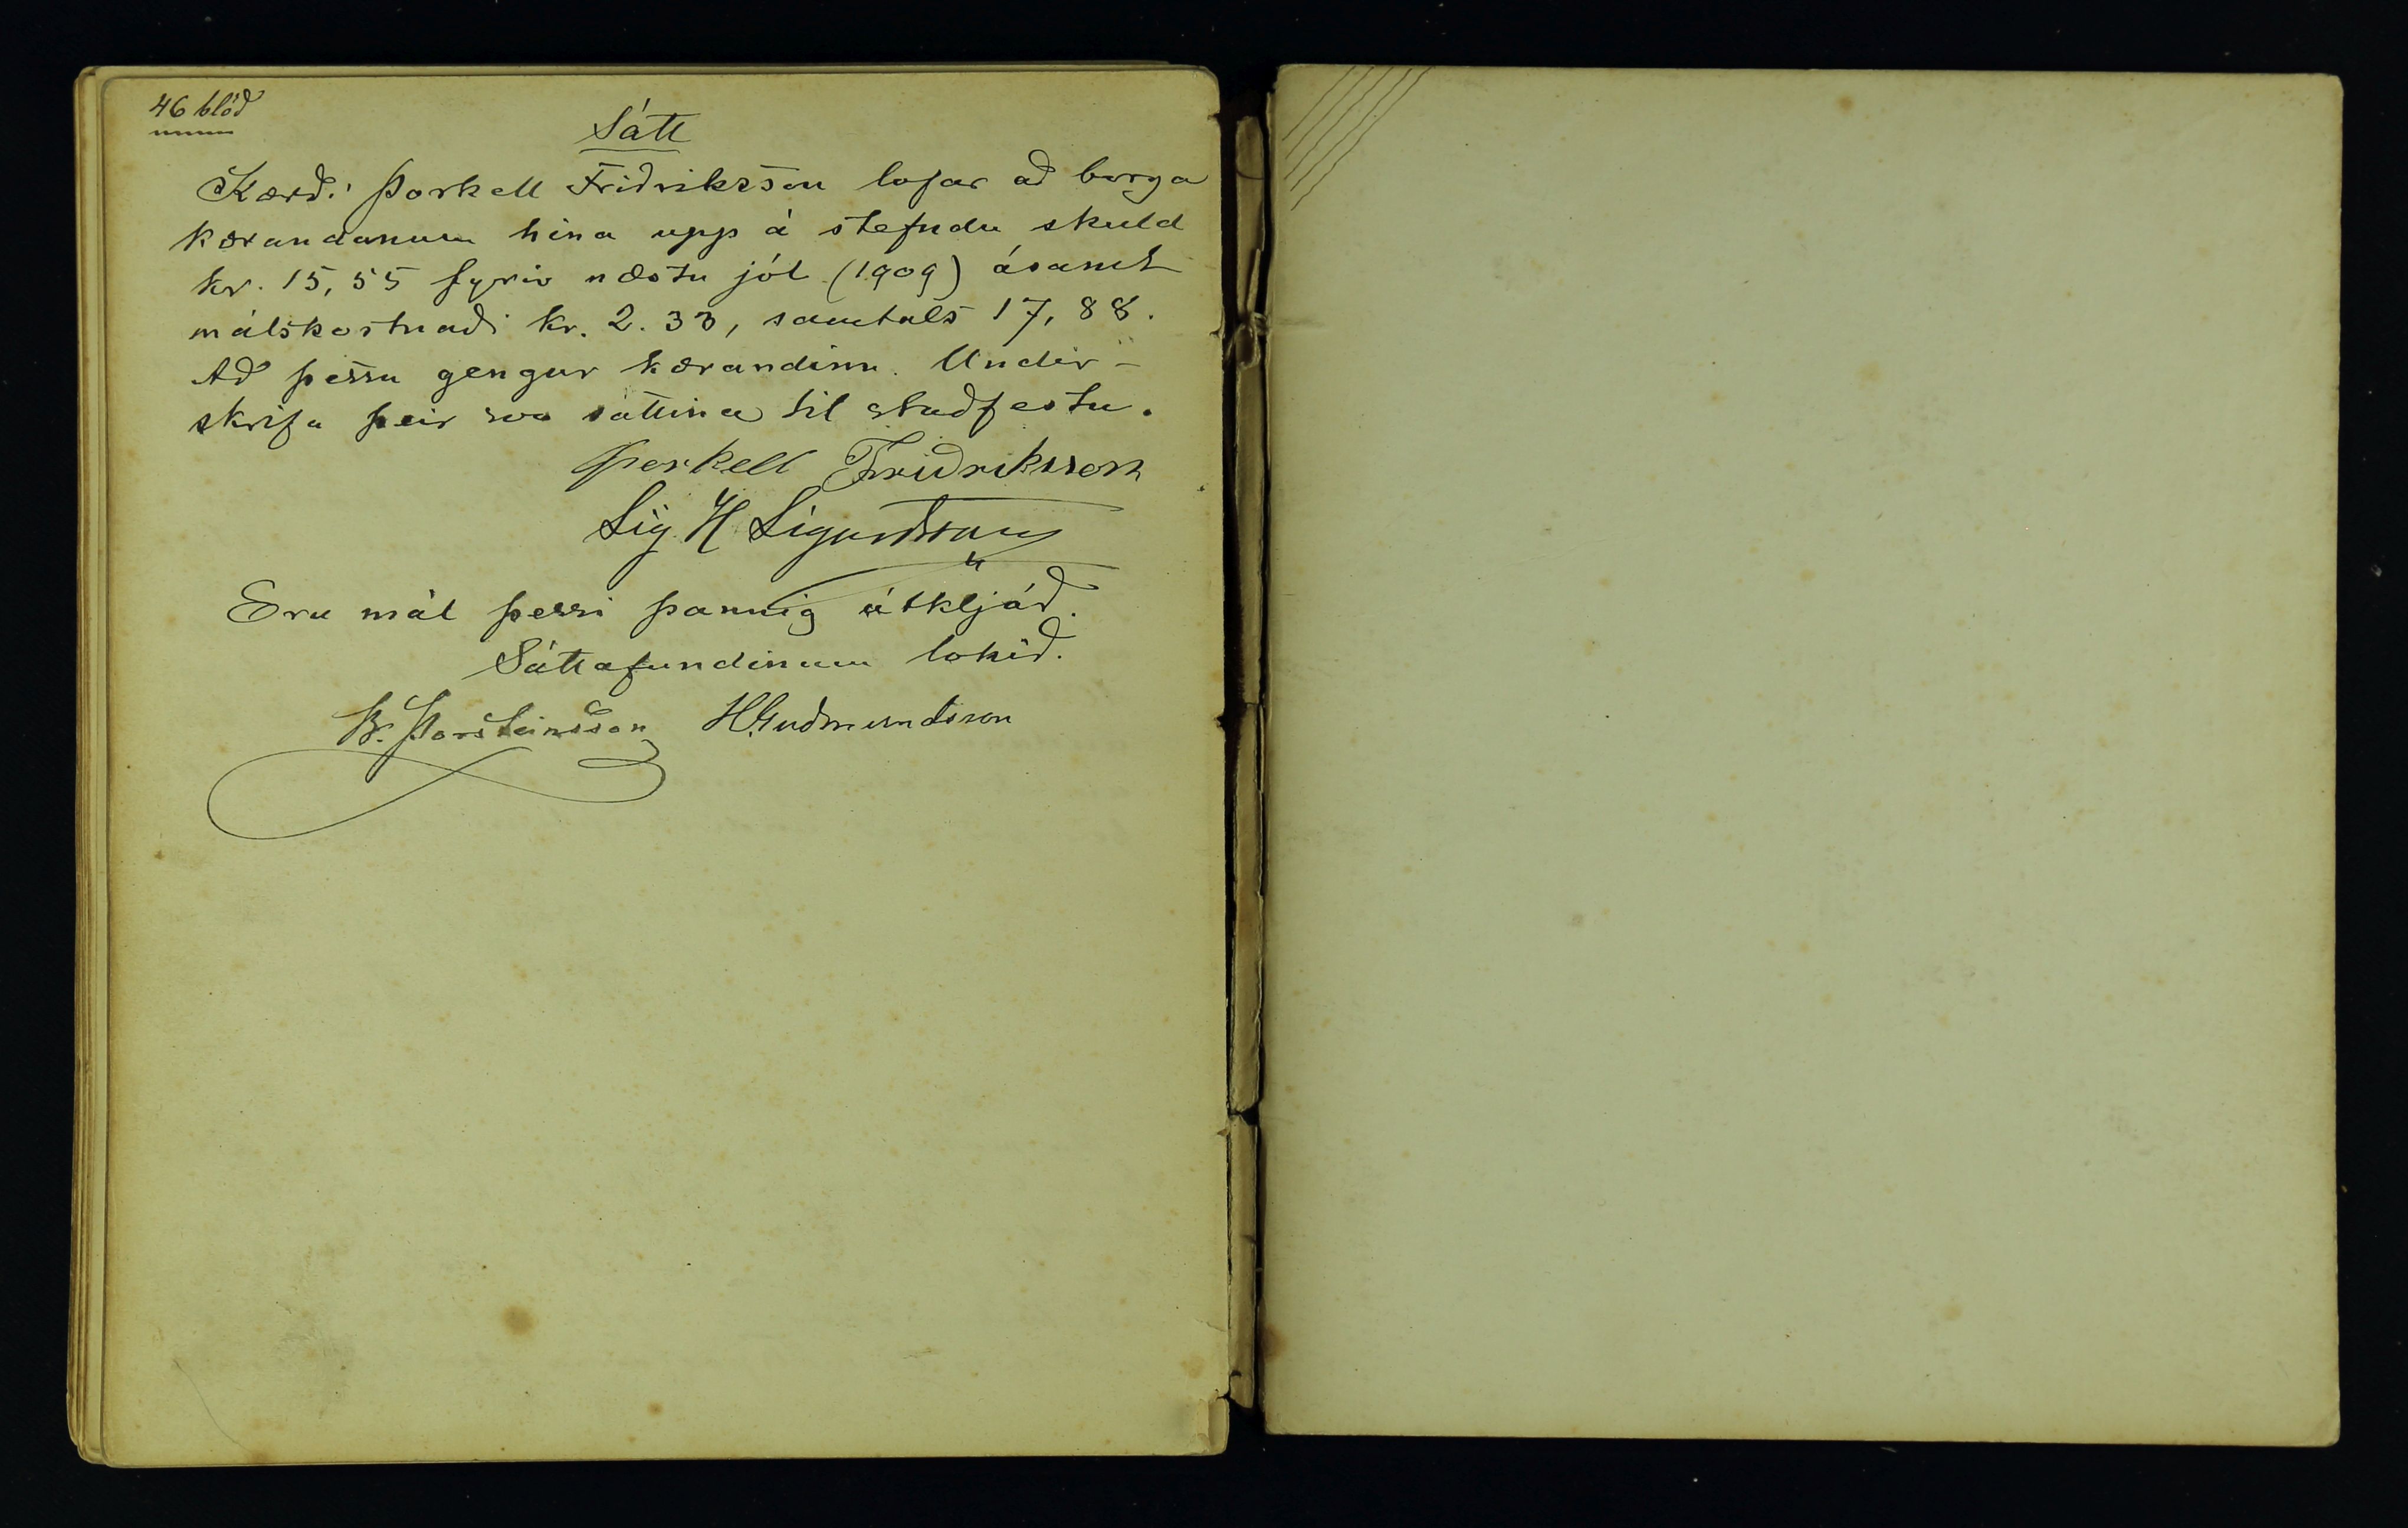 46 blöð
Sátt
Kærð: Þorkell Friðriksson lofar að borga
kærandanum hina upp á stefndu skuld
kr. 15,55 fyrir næstu jól (1909) ásamt
málskostnaði kr. 2.33, samtals 17,88.
Að þessu gengur kærandinn. Under-
skrifa þeir svo sáttina til staðfestu.
Þorkell Friðriksson
Sig H Sigurdsson
Eru mál þessi þannig útkljáð.
Sáttafundinum lokið.
B. Þorsteinsson H. Guðmundsson